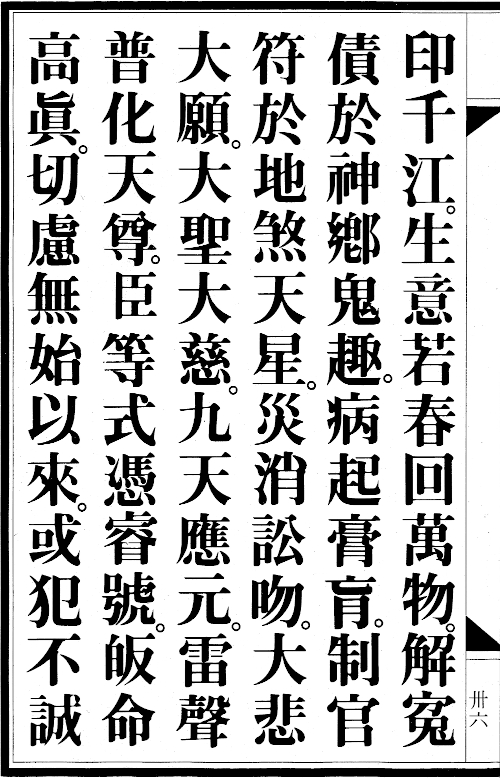 印千江。生意若春回萬物。解寃
債於神鄉鬼趣。病起膏肓。制官
符於地煞天星。災消訟吻。大悲
大願。大聖大慈。九天應元。雷聲
普化天尊。臣等式憑睿號。皈命
高眞。切慮無始以來。或犯不誠
卅六